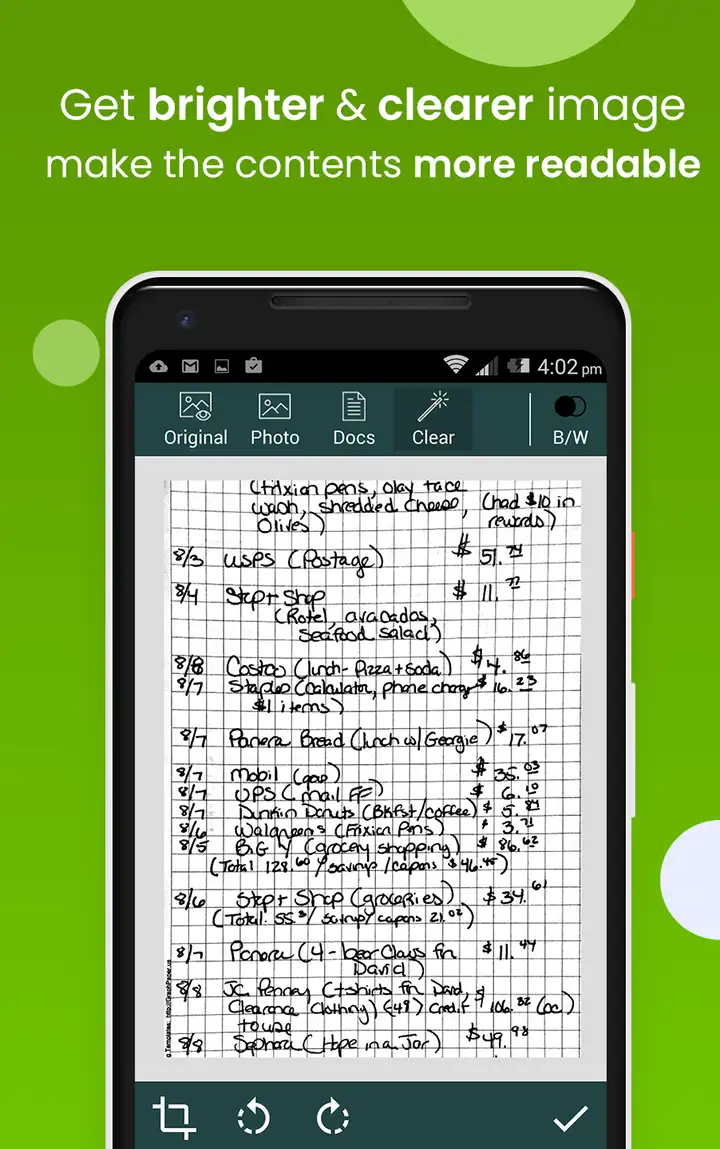 Get brighter & clearer image
make the contents more readable
4:02 pm
Original Photo Docs Clear B/W
(frixion pens, olay face
wash, shredded cheese, (had $10 in
Olives) rewards)
8/3 USPS (Postage) $ 51.74
8/4 Stop + Shop $ 11.77
(Rotel, avacados,
seafood salad)
8/8 Costco (lunch - Pizza + Soda) $ 4.86
8/7 Staples (calculator, phone charge $ 16.23
$1 items)
8/7 Panera Bread (lunch w/ Georgie) $ 17.07
8/7 Mobil (gas) $ 35.03
8/7 UPS (mail FF) $ 6.10
8/7 Dunkin Donuts (Bkfst/coffee) $ 5.84
8/6 Walgreens (Frixion Pens) $ 3.71
8/5 Big Y (grocery shopping) $ 86.62
(Total 128.60 / savings / coupons $46.45)
8/6 Stop + Shop (groceries) $ 34.61
(Total 55. / savings/ coupons 21.02)
8/7 Panera (4 - bear Claws for $ 11.44
David)
8/8 JC Penney (t-shirts for David,
Clearance Clothing) (-48) credit $ 106.82 (cc)
to use
8/8 Sephora (Hope in a Jar) $49.98